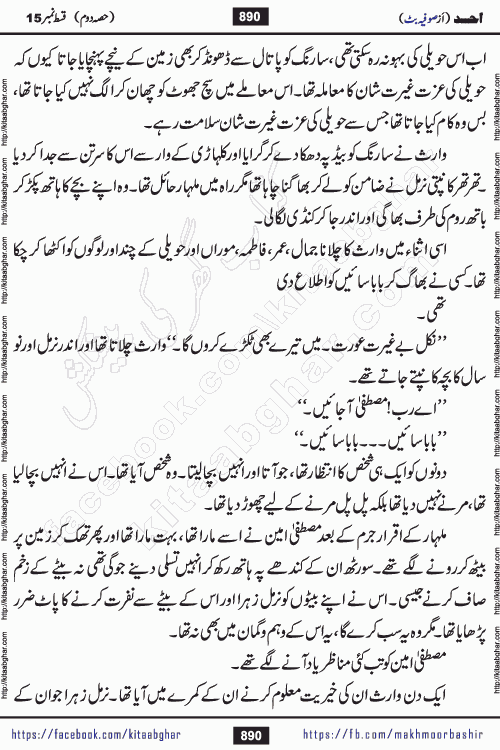 احمد (از صوفیہ بٹ)
890
(حصہ دوم) قسط نمبر 15
اب اس حویلی کی بہو نہ رہ سکتی تھی، سارنگ کو پاتال سے ڈھونڈ کر بھی زمین کے نیچے پہنچایا جاتا کیوں کہ
حویلی کی عزت غیرت شان کا معاملہ تھا۔ اس معاملے میں سچ جھوٹ کو چھان کر الگ نہیں کیا جاتا تھا،
بس وہ کام کیا جاتا تھا جس سے حویلی کی عزت غیرت شان سلامت رہے۔
وارث نے سارنگ کو بیڈ پہ دھکا دے کر گرایا اور کلہاڑی کے وار سے اس کا سر تن سے جدا کر دیا
۔ تھر تھر کانپتی نرمل نے ضامن کو لے کر بھاگنا چاہا تھا مگر راہ میں ملہار حائل تھا۔ وہ اپنے بچے کا ہاتھ پکڑ کر
باتھ روم کی طرف بھاگی اور اندر جا کر کنڈی لگا لی۔
اسی اثناء میں وارث کا چلانا جمال، عمر، فاطمہ، موراں اور حویلی کے چند اور لوگوں کو اکٹھا کر چکا
تھا۔ کسی نے بھاگ کر بابا سائیں کو اطلاع دی
تھی۔
’’نکل بے غیرت عورت۔ میں تیرے بھی ٹکڑے کروں گا۔‘‘ وارث چلاتا تھا اور اندر نرمل اور نو
سال کا بچہ کانپتے جاتے تھے۔
’’اے رب! مصطفیٰ آ جائیں۔‘‘
’’بابا سائیں۔۔۔ بابا سائیں۔‘‘
دونوں کو ایک ہی شخص کا انتظار تھا، جو آتا اور انہیں بچا لیتا۔ وہ شخص آیا تھا۔ اس نے انہیں بچا لیا
تھا، مرنے نہیں دیا تھا بلکہ پل پل مرنے کے لیے چھوڑ دیا تھا۔
ملہار کے اقرار جرم کے بعد مصطفیٰ امین نے اسے مارا تھا، بہت مارا تھا اور پھر تھک کر زمین پر
بیٹھ کر رونے لگے تھے۔ سورٹھ ان کے کندھے پہ ہاتھ رکھ کر انہیں تسلی دینے جو گی تھی نہ بیٹے کے زخم
صاف کرنے جیسی۔ اس نے اپنے بیٹوں کو نرمل زہرا اور اس کے بیٹے سے نفرت کرنے کا پاٹ ضرور
پڑھایا تھا۔ مگر وہ یہ سب کرے گا، یہ اس کے وہم و گمان میں بھی نہ تھا۔
مصطفیٰ امین کو تب کئی مناظر یاد آنے لگے تھے۔
ایک دن وارث ان کی خیریت معلوم کرنے ان کے کمرے میں آیا تھا۔ نرمل زہرا جوان کے
https://facebook.com/kitaabghar
890
https://fb.com/makhmoorbashir
http://kitaabghar.com
http://kitaabghar.com